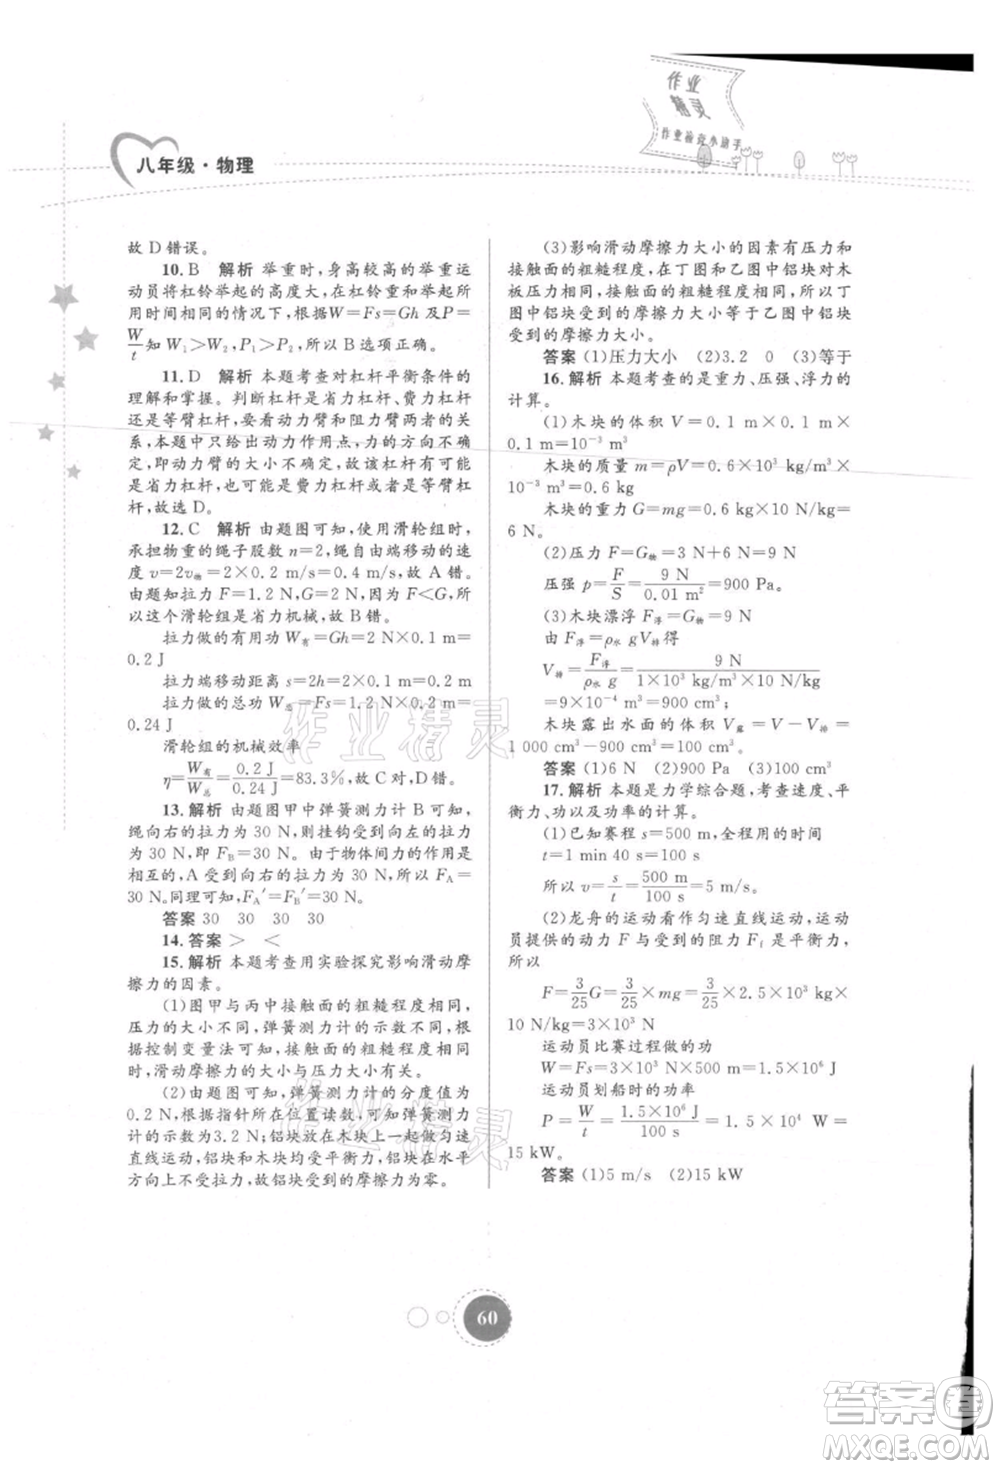 作业
精灵
作业检查小助手
八年级·物理
故 D 错误。
10. B 解析 举重时,身高较高的举重运
动员将杠铃举起的高度大,在杠铃重相同、所
用时间相同的情况下,根据W=Fs=Gh 及 P=
W/t 知 W₁>W₂,P₁>P₂,所以 B 选项正确。
11. D 解析 本题考查对杠杆平衡条件的
理解和掌握。判断杠杆是省力杠杆、费力杠杆
还是等臂杠杆,要看动力臂和阻力臂两者的关
系,本题中只给出动力作用点,力的方向不确
定,即动力臂的大小不确定,故该杠杆可能
是省力杠杆,也可能是费力杠杆或等臂杠
杆,故选 D。
12. C 解析 由题图可知,使用滑轮组时,
承担物重的绳子股数 n=2,绳自由端移动的速
度 v=2v物=2×0.2 m/s=0.4 m/s,故 A 错。
由题知拉力 F=1.2 N,G=2 N,因为 F<G,所
以该滑轮组是省力机械,故 B 错。
拉力做的有用功 W有=Gh=2 N×0.1 m=
0.2 J
拉力端移动距离 s=2h=2×0.1 m=0.2 m
拉力做的总功 W总=Fs=1.2 N×0.2 m=
0.24 J
滑轮组的机械效率
η=W有/W总=0.2 J/0.24 J=83.3%,故 C 对,D 错。
13. 解析 由题图甲中弹簧测力计 B 可知,
绳向右的拉力为 30 N,则挂钩受到向左的拉力
为 30 N,即 FB=30 N。由于物体间力的作用是
相互的,A 受到向右的拉力为 30 N,所以 FA=
30 N。同理可知,FA′=FB′=30 N。
答案 30 30 30 30
14. 答案 > <
15. 解析 本题考查用实验探究影响滑动摩
擦力的因素。
(1)图甲与丙中接触面的粗糙程度相同,
压力的大小不同,弹簧测力计的示数不同,根
据控制变量法可知,接触面的粗糙程度相同
时,滑动摩擦力的大小与压力大小有关。
(2)由题图可知,弹簧测力计的分度值为
0.2 N,根据指针所在位置读数,可知弹簧测力
计的示数为3.2 N;铝块放在木块上一起做匀速
直线运动,铝块和木块均受平衡力,铝块在水平
方向上不受拉力,故铝块受到的摩擦力为零。
(3)影响滑动摩擦力大小的因素有压力和
接触面的粗糙程度,在丁图和乙图中铝块对木
板压力相同,接触面的粗糙程度相同,所以丁
图中铝块受到的摩擦力大小等于乙图中铝块
受到的摩擦力大小。
答案 (1)压力大小 (2)3.2 0 (3)等于
16. 解析 本题考查的是重力、压强、浮力的
计算。
(1)木块的体积 V=0.1 m×0.1 m×
0.1 m=10⁻³ m³
木块的质量 m=ρV=0.6×10³ kg/m³×
10⁻³ m³=0.6 kg
木块的重力 G=mg=0.6 kg×10 N/kg=
6 N。
(2)压力 F=G物=3 N+6 N=9 N
压强 p=F/S=9 N/0.01 m²=900 Pa。
(3)木块漂浮 F浮=G物=9 N
由 F浮=ρ水 gV排得
V排=F浮/ρ水 g=9 N/1×10³ kg/m³×10 N/kg
=9×10⁻⁴ m³=900 cm³
木块露出水面的体积 V露=V−V排=
1 000 cm³−900 cm³=100 cm³。
答案 (1)6 N (2)900 Pa (3)100 cm³
17. 解析 本题是力学综合题,考查速度、平
衡力、功以及功率的计算。
(1)已知赛程 s=500 m,全程用的时间
t=1 min 40 s=100 s
所以 v=s/t=500 m/100 s=5 m/s。
(2)龙舟的运动看作匀速直线运动,运动
员提供的动力 F 与受到的阻力 Ff 是平衡力,
所以
F=3/25G=3/25×mg=3/25×2.5×10³ kg×
10 N/kg=3×10³ N
运动员比赛过程做的功
W=Fs=3×10³ N×500 m=1.5×10⁶ J
运动员划船时的功率
P=W/t=1.5×10⁶ J/100 s=1.5×10⁴ W=
15 kW。
答案 (1)5 m/s (2)15 kW
作业精灵
作业精灵
60
答案圈
MXQE.COM